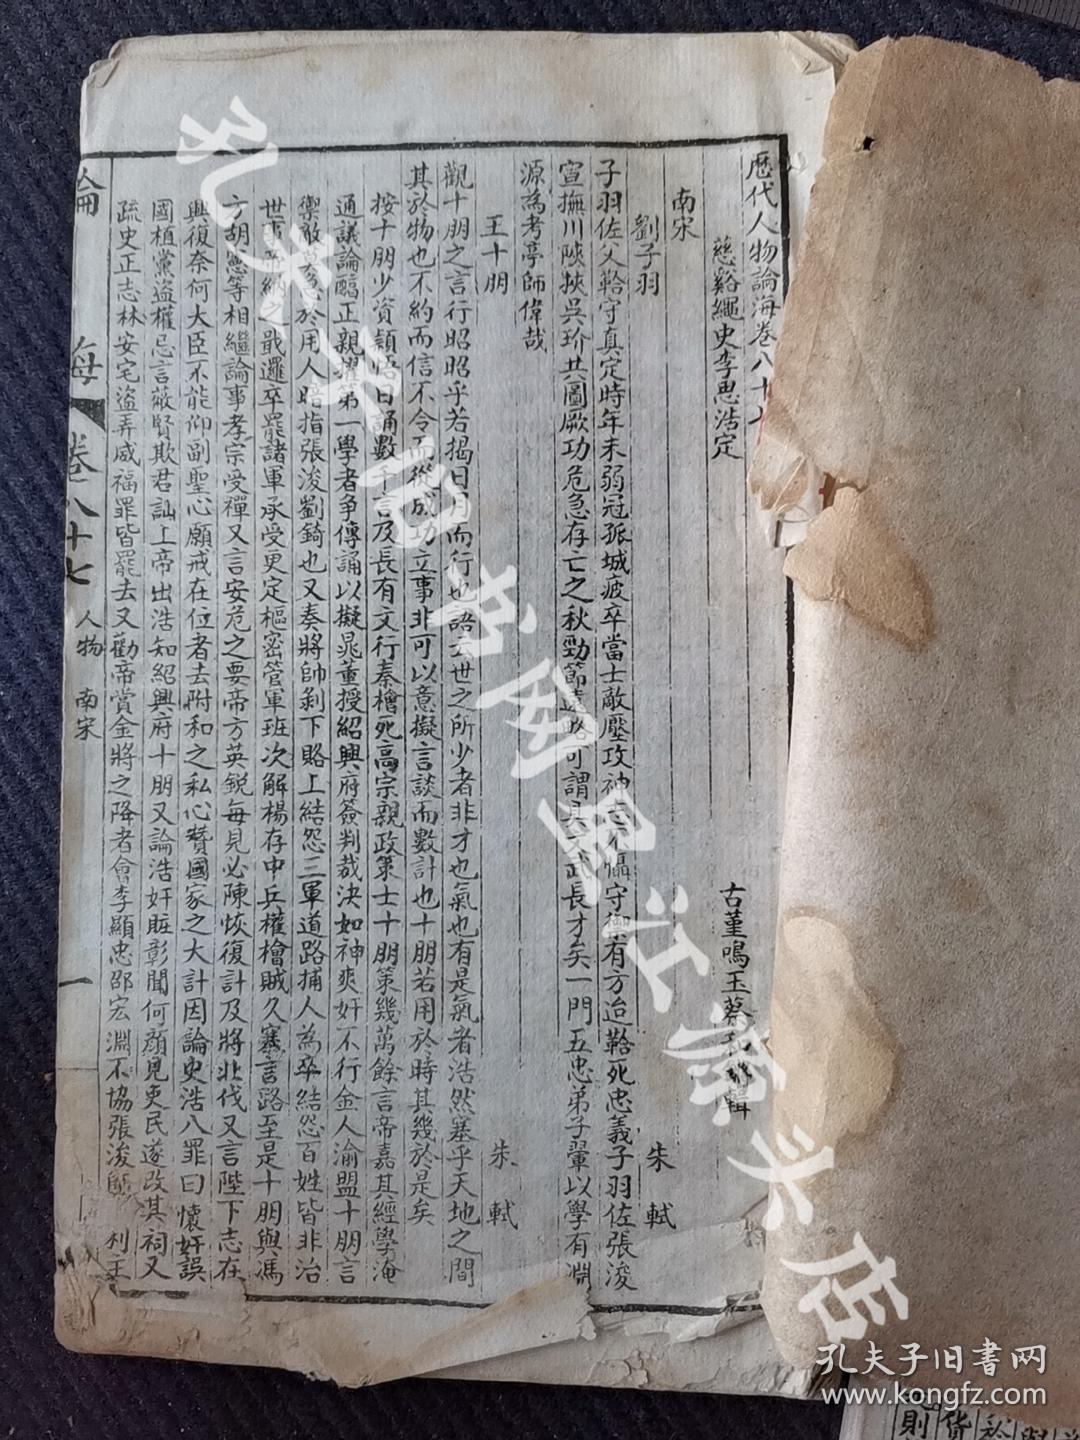 歷代人物論海卷八十七
慈谿繩史李思浩定
古堇鳴玉蔡和鏘輯
南宋
劉子羽
朱軾
子羽佐父韐守真定時年未弱冠孤城疲卒當士敵壓攻神志不懾守禦有方迨韐死忠義子羽佐張浚
宣撫川陝挾吳玠共圖厥功危急存亡之秋勁節遠略可謂具文武長才矣一門五忠弟子翬以學有淵
源為考亭師偉哉
王十朋
朱軾
觀十朋之言行昭昭乎若揭日月而行也語云世之所少者非才也氣也有是氣者浩然塞乎天地之間
其於物也不約而信不令而從成功立事非可以意擬言談而數計也十朋若用於時其幾於是矣
按十朋少資穎悟日誦數千言及長有文行秦檜死高宗親政策士十朋策幾萬餘言帝嘉其經學淹
通議論醇正親擢第一學者爭傳誦以擬晁董授紹興府簽判裁決如神爽奸不行金人渝盟十朋言
禦敵莫急於用人暗指張浚劉錡也又奏將帥剝下賂上結怨三軍道路捕人為卒結怨百姓皆非治
世事帝納之戢邏卒罷諸軍承受更定樞密管軍班次解楊存中兵權檜賊久塞言路至是十朋與馮
方胡憲等相繼論事孝宗受禪又言安危之要帝方英銳每見必陳恢復計及將北伐又言陛下志在
興復奈何大臣不能仰副聖心願戒在位者去附和之私心贊國家之大計因論史浩八罪曰懷奸誤
國植黨盜權忌言蔽賢欺君訕上帝出浩知紹興府十朋又論浩奸賍彰聞何顏見吏民遂改其祠又
疏史正志林安宅盜弄威福罪皆罷去又勸帝賞金將之降者會李顯忠邵宏淵不協張浚師 利主
論海 卷八十七 人物 南宋 一
孔夫子旧书网星江源头店
孔夫子旧书网
www.kongfz.com
則 货